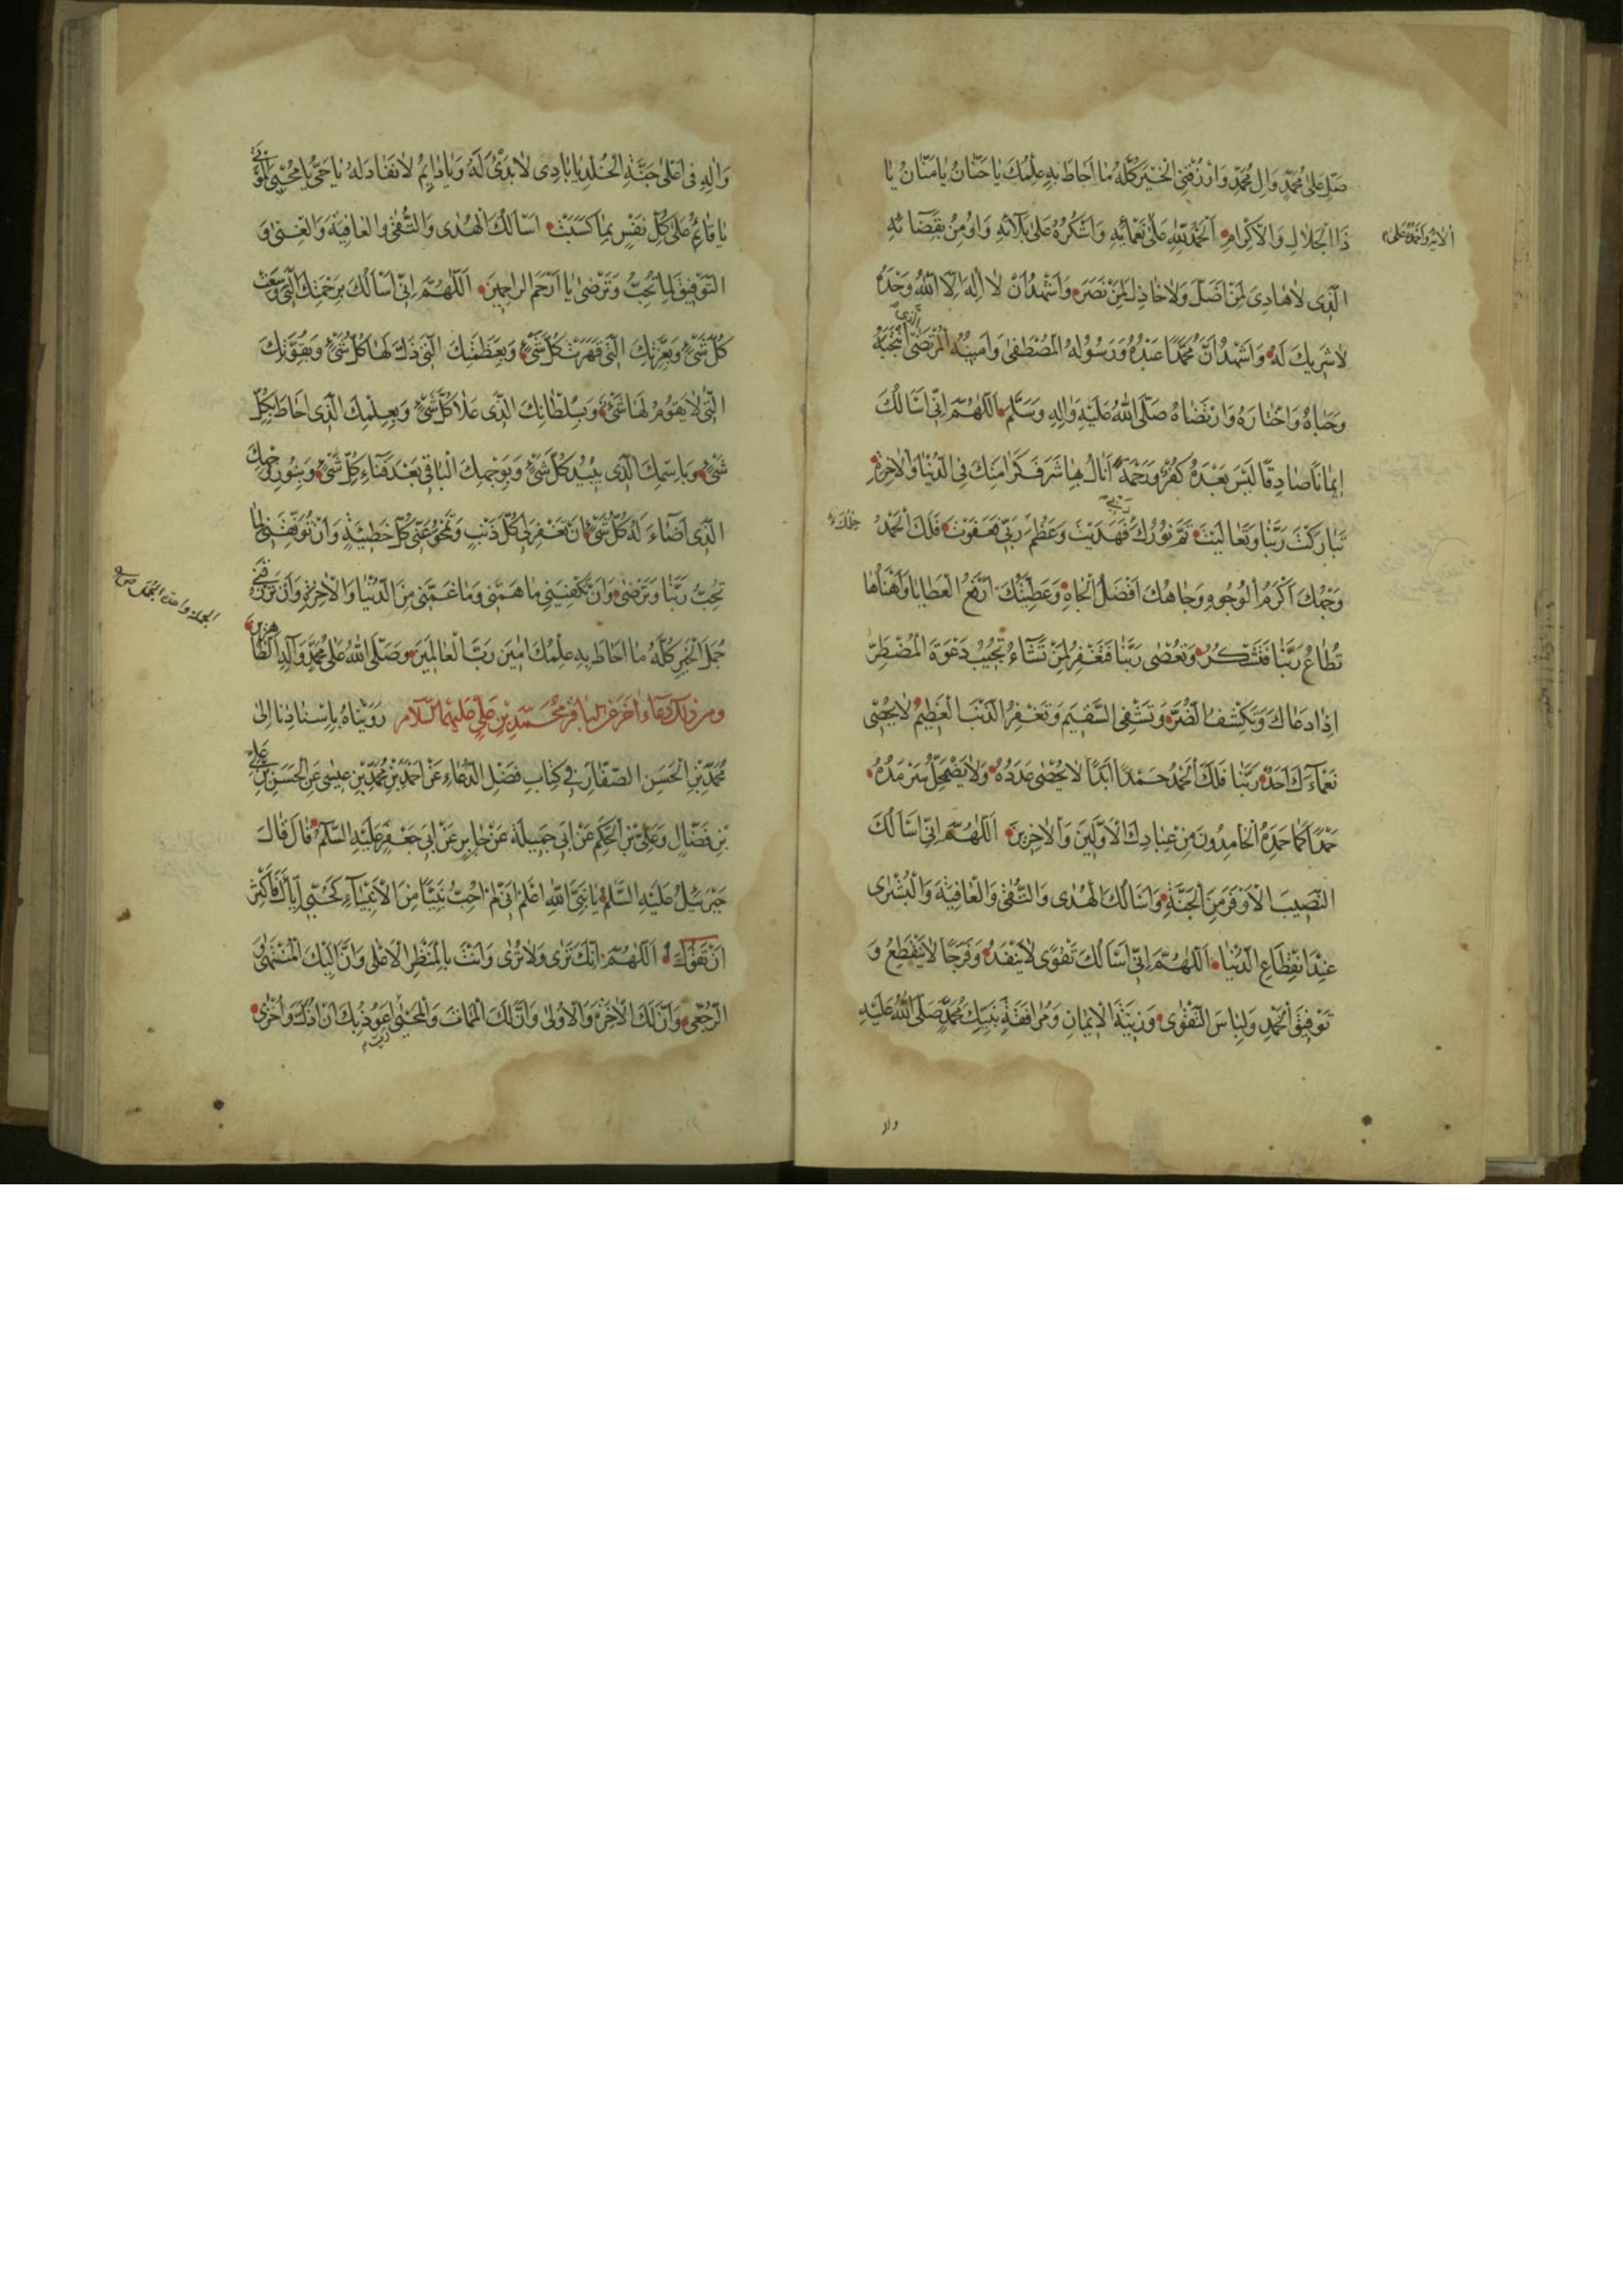 صَلِّ عَلىٰ مُحَمَّدٍ وَالِ مُحَمَّدٍ وَارْزُقْنِى الْخَيْرَ كُلَّهُ مٰا اَحٰاطَ بِهِ عِلْمُكَ يٰا حَنّٰانُ يٰا مَنّٰانُ يٰا
ذَا الْجَلٰالِ وَالْاِكْرٰامِ اَلْحَمْدُ لِلّٰهِ عَلىٰ نَعْمٰائِهِ وَاَشْكُرُهُ عَلىٰ بَلٰائِهِ وَاُومِنُ بِقَضٰائِهِ
الَّذِى لٰا هٰادِىَ لِمَنْ اَضَلَّ وَلٰا خٰاذِلَ لِمَنْ نَصَرَ وَاَشْهَدُ اَنْ لٰا اِلٰهَ اِلَّا اللّٰهُ وَحْدَهُ
لٰا شَرِيكَ لَهُ وَاَشْهَدُ اَنَّ مُحَمَّدًا عَبْدُهُ وَرَسُولُهُ الْمُصْطَفىٰ وَاَمِينُهُ الْمُرْتَضىٰ انْتَجَبَهُ
وَحَبٰاهُ وَاخْتٰارَهُ وَارْتَضٰاهُ صَلَّى اللّٰهُ عَلَيْهِ وَاٰلِهِ وَسَلَّمَ اَللّٰهُمَّ اِنِّى اَسْاَلُكَ
اِيمٰانًا صٰادِقًا لَيْسَ بَعْدَهُ كُفْرٌ وَرَحْمَةً اَنٰالُ بِهٰا شَرَفَ كَرٰامَتِكَ فِى الدُّنْيٰا وَالْاٰخِرَةِ
تَبٰارَكْتَ رَبَّنٰا وَتَعٰالَيْتَ تَمَّ نُورُكَ فَهَدَيْتَ وَعَظُمَ رَبِّى فَعَفَوْتَ فَلَكَ الْحَمْدُ
وَجْهُكَ اَكْرَمُ الْوُجُوهِ وَجٰاهُكَ اَفْضَلُ الْجٰاهِ وَعَطِيَّتُكَ اَرْفَعُ الْعَطٰايٰا وَاَهْنَاُهٰا
تُطٰاعُ رَبَّنٰا فَتَشْكُرُ وَتُعْصٰى رَبَّنٰا فَتَغْفِرُ لِمَنْ تَشٰاءُ تُجِيبُ دَعْوَةَ الْمُضْطَرِّ
اِذٰا دَعٰاكَ وَتَكْشِفُ الضُّرَّ وَتَشْفِى السَّقِيمَ وَتَغْفِرُ الذَّنْبَ الْعَظِيمَ لٰا يُحْصِى
نَعْمٰاءَكَ اَحَدٌ رَبَّنٰا فَلَكَ الْحَمْدُ حَمْدًا اَبَدًا لٰا يُحْصٰى عَدَدُهُ وَلٰا يَضْمَحِلُّ سَرْمَدُهُ
حَمْدًا كَمٰا حَمِدَهُ الْحٰامِدُونَ مِنْ عِبٰادِكَ الْاَوَّلِينَ وَالْاٰخِرِينَ اَللّٰهُمَّ اِنِّى اَسْاَلُكَ
النَّصِيبَ الْاَوْفَرَ مِنَ الْجَنَّةِ وَاَسْاَلُكَ الْهُدٰى وَالتُّقٰى وَالْعٰافِيَةَ وَالْبُشْرٰى
عِنْدَ انْقِطٰاعِ الدُّنْيٰا اَللّٰهُمَّ اِنِّى اَسْاَلُكَ تَقْوٰى لٰا يَنْفَدُ وَفَرَجًا لٰا يَنْقَطِعُ وَ
تَوْفِيقَ الْحَمْدِ وَلِبٰاسَ التَّقْوٰى وَزِينَةَ الْاِيمٰانِ وَمُرٰافَقَةَ نَبِيِّكَ مُحَمَّدٍ صَلَّى اللّٰهُ عَلَيْهِ
وَاٰلِهِ فِى اَعْلىٰ جَنَّةِ الْخُلْدِ يٰا بٰادِى لٰا بَدْىَٔ لَهُ وَيٰا دٰايِمُ لٰا نَفٰادَ لَهُ يٰا حَىُّ يٰا مُحْيِىَ الْمَوْتىٰ
يٰا قٰائِمُ عَلىٰ كُلِّ نَفْسٍ بِمٰا كَسَبَتْ اَسْاَلُكَ الْهُدٰى وَالتُّقٰى وَالْعٰافِيَةَ وَالْغِنىٰ وَ
التَّوْفِيقَ لِمٰا تُحِبُّ وَتَرْضىٰ يٰا اَرْحَمَ الرّٰاحِمِينَ اَللّٰهُمَّ اِنِّى اَسْاَلُكَ بِرَحْمَتِكَ الَّتِى وَسِعَتْ
كُلَّ شَىْءٍ وَبِعِزَّتِكَ الَّتِى قَهَرَتْ كُلَّ شَىْءٍ وَبِعَظَمَتِكَ الَّتِى ذَلَّ لَهٰا كُلُّ شَىْءٍ وَبِقُوَّتِكَ
الَّتِى لٰا يَقُومُ لَهٰا شَىْءٌ وَبِسُلْطٰانِكَ الَّذِى عَلٰا كُلَّ شَىْءٍ وَبِعِلْمِكَ الَّذِى اَحٰاطَ بِكُلِّ
شَىْءٍ وَبِاسْمِكَ الَّذِى يُبِيدُ كُلَّ شَىْءٍ وَبِوَجْهِكَ الْبٰاقِى بَعْدَ فَنٰاءِ كُلِّ شَىْءٍ وَبِنُورِ وَجْهِكَ
الَّذِى اَضٰاءَ لَهُ كُلُّ شَىْءٍ اَنْ تَغْفِرَ لِى كُلَّ ذَنْبٍ وَتَمْحُوَ عَنِّى كُلَّ خَطِيئَةٍ وَاَنْ تُوَفِّقَنِى لِمٰا
تُحِبُّ رَبَّنٰا وَتَرْضىٰ وَاَنْ تَكْفِيَنِى مٰا هَمَّنِى وَمٰا غَمَّنِى مِنَ الدُّنْيٰا وَالْاٰخِرَةِ وَاَنْ تَرْزُقَنِى
جُمَلَ الْخَيْرِ كُلَّهُ مٰا اَحٰاطَ بِهِ عِلْمُكَ اٰمِينَ رَبَّ الْعٰالَمِينَ وَصَلَّى اللّٰهُ عَلىٰ مُحَمَّدٍ وَاٰلِهِ الطّٰاهِرِينَ
ومن ذلك دعاء اخر عن الباقر محمّد بن علي عليهما السّلام رَوَيْنٰاهُ بِاِسْنٰادِنٰا اِلىٰ
مُحَمَّدِ بْنِ الْحَسَنِ الصَّفّٰارِ فِى كِتٰابِ فَضْلِ الدُّعٰاءِ عَنْ اَحْمَدَ بْنِ مُحَمَّدِ بْنِ عِيسىٰ عَنِ الْحَسَنِ بْنِ عَلِىِّ
بْنِ فَضّٰالٍ وَعَلِىِّ بْنِ الْحَكَمِ عَنْ اَبِى جَمِيلَةَ عَنْ جٰابِرٍ عَنْ اَبِى جَعْفَرٍ عَلَيْهِ السَّلٰمُ قٰالَ قٰالَ
جَبْرَئِيلُ عَلَيْهِ السَّلٰمُ يٰا نَبِىَّ اللّٰهِ اعْلَمْ اَنِّى لَمْ اُحِبَّ نَبِيًّا مِنَ الْاَنْبِيٰاءِ كَحُبِّى اِيّٰاكَ فَاَكْثِرْ
اَنْ تَقُولَ اَللّٰهُمَّ اِنَّكَ تَرىٰ وَلٰا تُرىٰ وَاَنْتَ بِالْمَنْظَرِ الْاَعْلىٰ وَاَنَّ اِلَيْكَ الْمُنْتَهىٰ وَ
الرُّجْعىٰ وَاَنَّ لَكَ الْاٰخِرَةَ وَالْاُولىٰ وَاَنَّ لَكَ الْمَمٰاتَ وَالْمَحْيٰى اَعُوذُ بِكَ اَنْ اُذَلَّ وَاُخْزىٰ